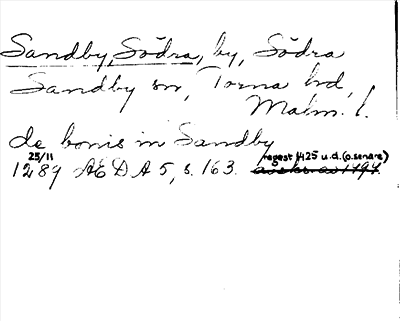 Sandby, Södra, by, Södra
Sandby sn, Torna hd,
Malm. l.
de bonis in Sandby
25/11 regest 1425 u.d. (o. senare)
1289 AEDA 5, s. 163. avskr. av 1494.